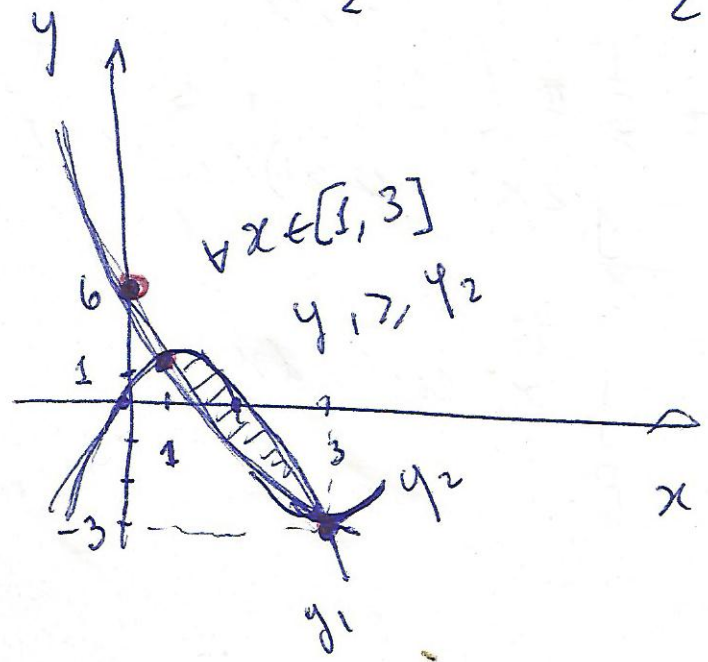 2 2
y
∀x∈[1,3]
6
y₁⩾y₂
1
1 3
y₂
-3
x
y₁